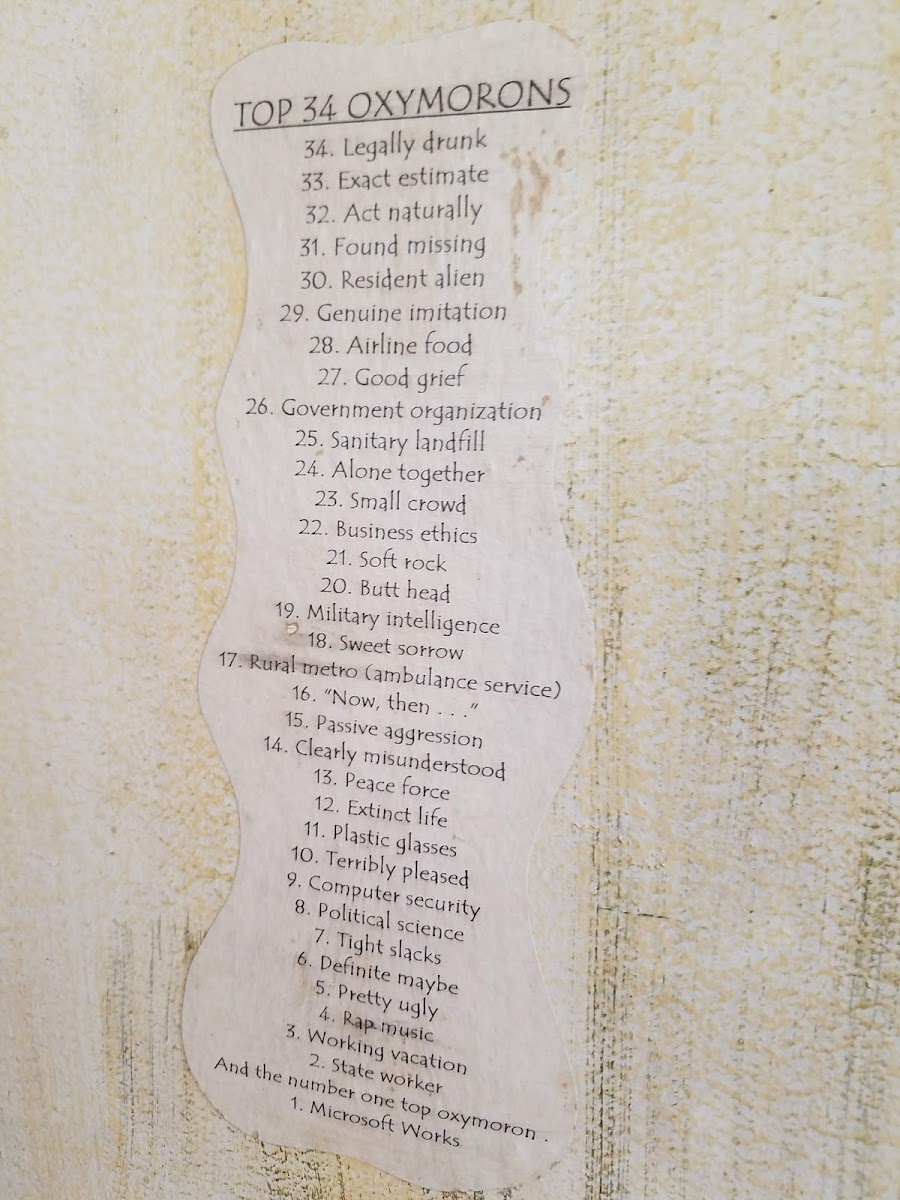 TOP 34 OXYMORONS
34. Legally drunk
33. Exact estimate
32. Act naturally
31. Found missing
30. Resident alien
29. Genuine imitation
28. Airline food
27. Good grief
26. Government organization
25. Sanitary landfill
24. Alone together
23. Small crowd
22. Business ethics
21. Soft rock
20. Butt head
19. Military intelligence
18. Sweet sorrow
17. Rural metro (ambulance service)
16. "Now, then . . ."
15. Passive aggression
14. Clearly misunderstood
13. Peace force
12. Extinct life
11. Plastic glasses
10. Terribly pleased
9. Computer security
8. Political science
7. Tight slacks
6. Definite maybe
5. Pretty ugly
4. Rap music
3. Working vacation
2. State worker
And the number one top oxymoron .
1. Microsoft Works